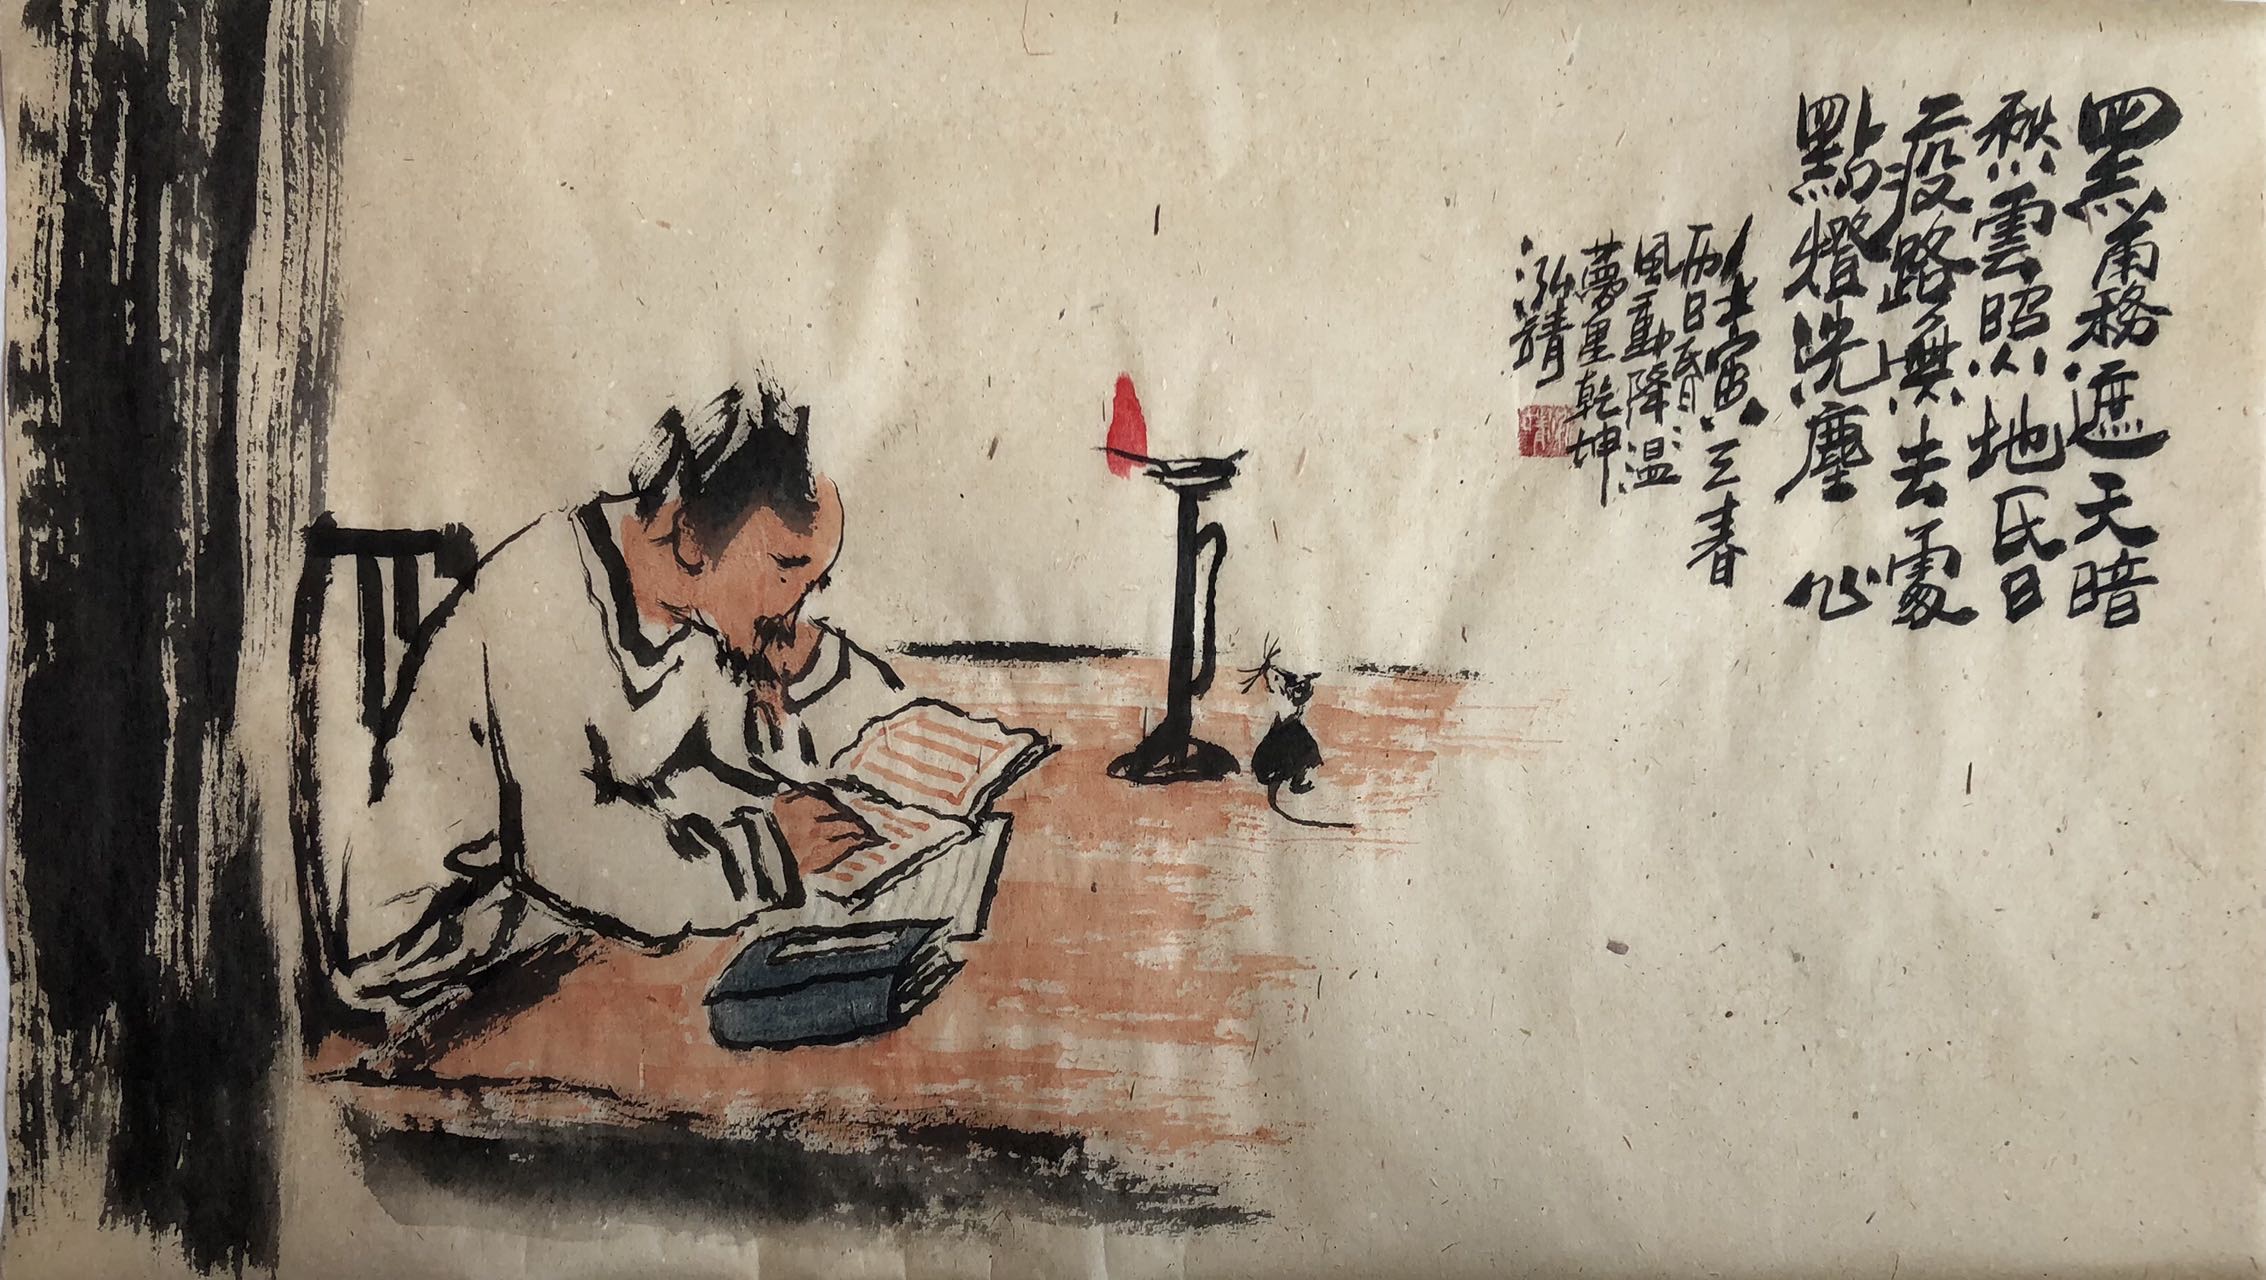 黑雨務遮天暗
愁雲照地昏
疫路無去處
點燈洗塵心
壬寅三春
雨日昏
風動降溫
夢里乾坤
泓靖